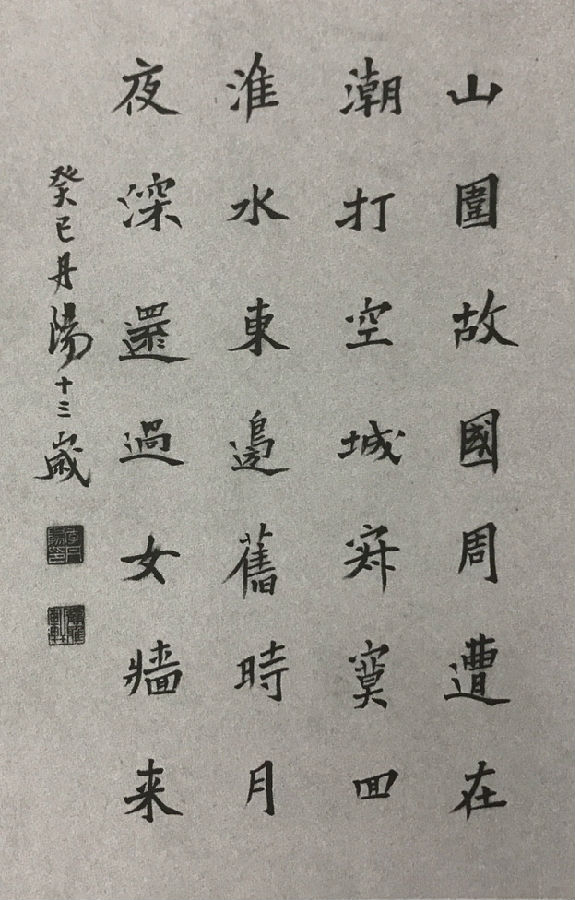 山圍故國周遭在
潮打空城寂寞回
淮水東邊舊時月
夜深還過女牆来
癸巳丹陽十三歲